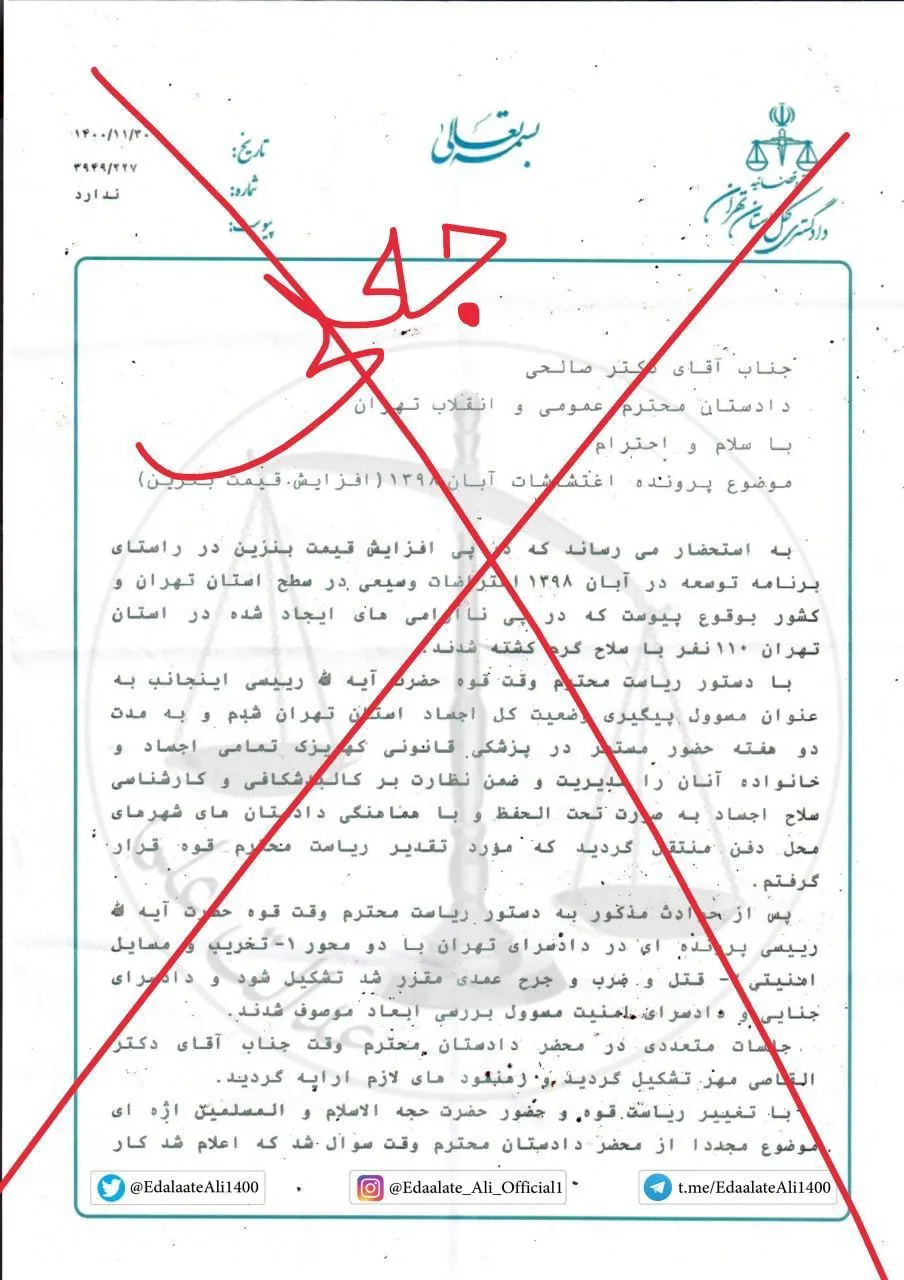 بسمه تعالی
قوه قضائیه
دادگستری کل استان تهران
تاریخ: ۱۴۰۰/۱۱/۳۰
شماره: ۳۹۴۹/۲۲۷
پیوست: ندارد
جعلی
جناب آقای دکتر صالحی
دادستان محترم عمومی و انقلاب تهران
با سلام و احترام
موضوع پرونده اغتشاشات آبان ۱۳۹۸(افزایش قیمت بنزین)
به استحضار می رساند که در پی افزایش قیمت بنزین در راستای
برنامه توسعه در آبان ۱۳۹۸ اعتراضات وسیعی در سطح استان تهران و
کشور بوقوع پیوست که در پی ناآرامی های ایجاد شده در استان
تهران ۱۱۰نفر با سلاح گرم کشته شدند.
با دستور ریاست محترم وقت قوه حضرت آیه الله رییسی اینجانب به
عنوان مسوول پیگیری وضعیت کل اجساد استان تهران شدم و به مدت
دو هفته حضور مستمر در پزشکی قانونی کهریزک تمامی اجساد و
خانواده آنان را مدیریت و ضمن نظارت بر کالبدشکافی و کارشناسی
سلاح اجساد به صورت تحت الحفظ و با هماهنگی دادستان های شهرهای
محل دفن منتقل گردید که مورد تقدیر ریاست محترم قوه قرار
گرفتم.
پس از حوادث مذکور به دستور ریاست محترم وقت قوه حضرت آیه الله
رییسی پرونده ای در دادسرای تهران با دو محور ۱-تخریب و مسایل
امنیتی ۲- قتل و ضرب و جرح عمدی مقرر شد تشکیل شود و دادسرای
جنایی و دادسرای امنیت مسوول بررسی ابعاد موصوف شدند.
جلسات متعددی در محضر دادستان محترم وقت جناب آقای دکتر
القاصی مهر تشکیل گردید و رهنمود های لازم ارایه گردید.
با تغییر ریاست قوه و حضور حضرت حجه الاسلام و المسلمین اژه ای
موضوع مجددا از محضر دادستان محترم وقت سوال شد که اعلام شد کار
@EdalaateAli1400
@Edaalate_Ali_Official1
t.me/EdaalateAli1400
عدالت علی